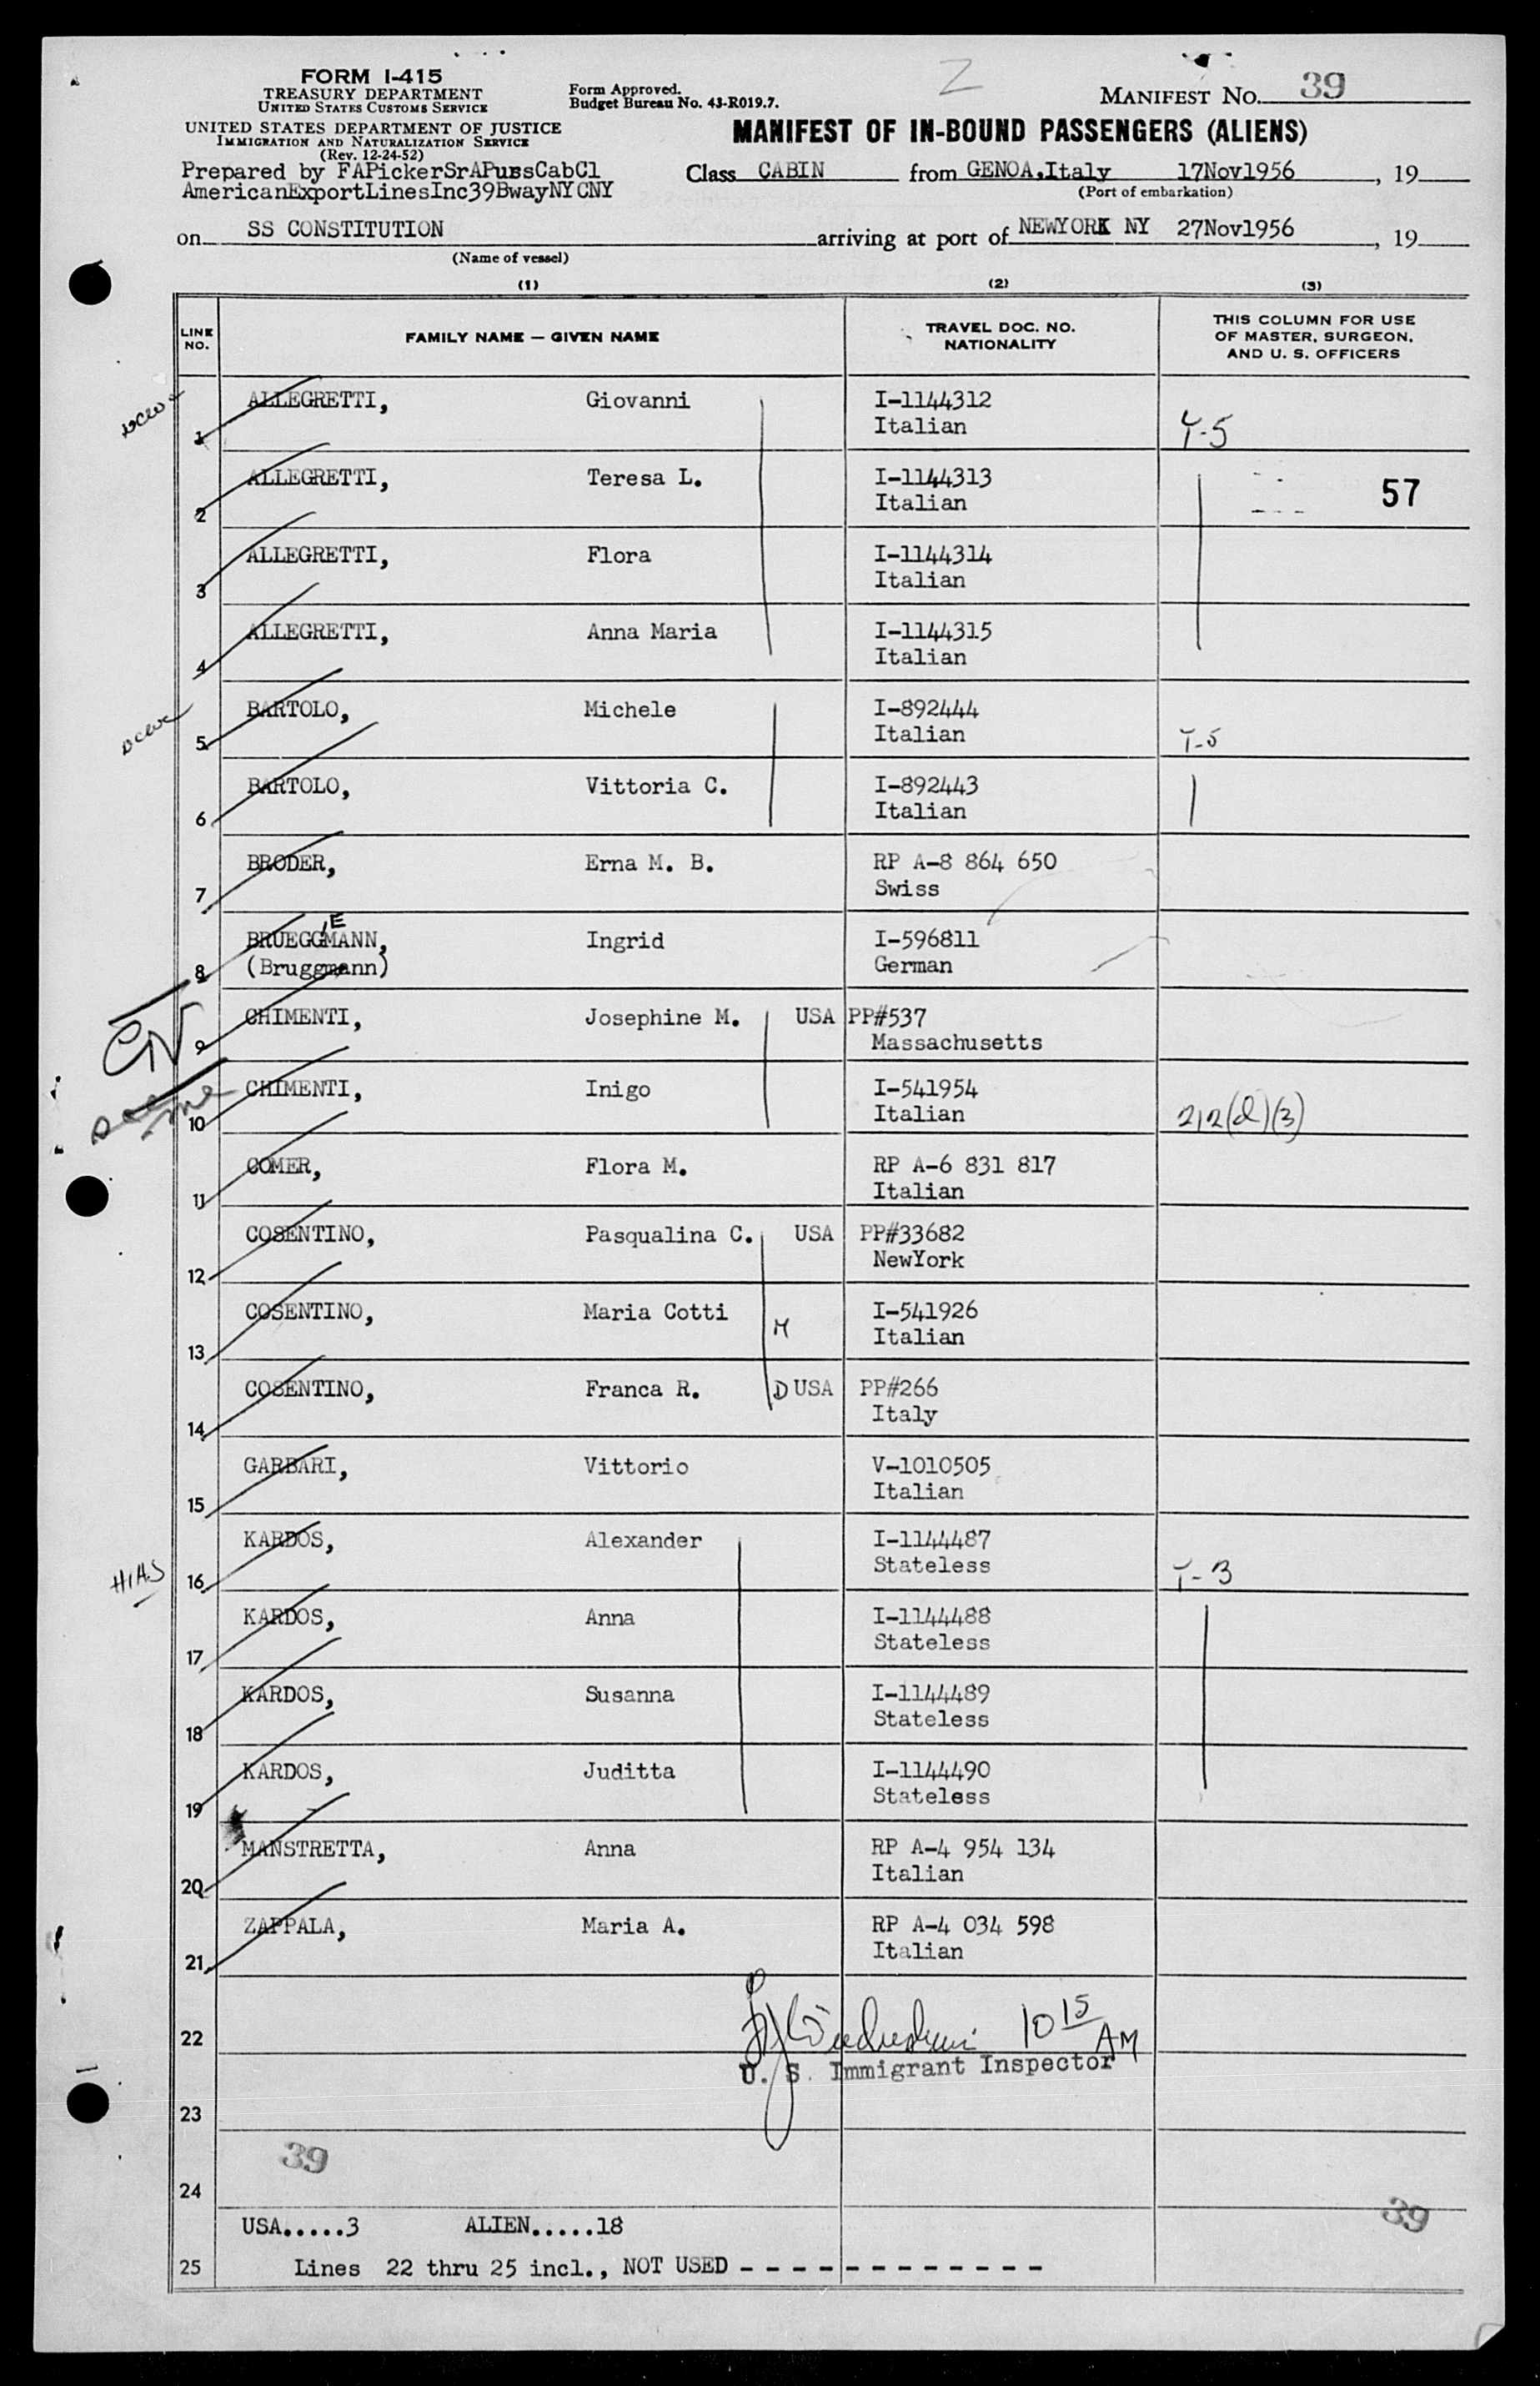 FORM I-415
TREASURY DEPARTMENT
UNITED STATES CUSTOMS SERVICE
UNITED STATES DEPARTMENT OF JUSTICE
IMMIGRATION AND NATURALIZATION SERVICE
(Rev. 12-24-52)
Form Approved.
Budget Bureau No. 43-R019.7.
Z
MANIFEST NO. 39
MANIFEST OF IN-BOUND PASSENGERS (ALIENS)
Prepared by FAPickerSrAPursCabCl
AmericanExportLinesInc39BwayNYCNY
Class CABIN from GENOA,Italy 17Nov1956, 19
(Port of embarkation)
on SS CONSTITUTION arriving at port of NEWYORK NY 27Nov1956, 19
(Name of vessel)
(1) (2) (3)
LINE NO.
FAMILY NAME — GIVEN NAME
TRAVEL DOC. NO.
NATIONALITY
THIS COLUMN FOR USE
OF MASTER, SURGEON,
AND U. S. OFFICERS
1 ALLEGRETTI, Giovanni I-1144312
Italian T-5
2 ALLEGRETTI, Teresa L. I-1144313
Italian 57
3 ALLEGRETTI, Flora I-1144314
Italian
4 ALLEGRETTI, Anna Maria I-1144315
Italian
5 BARTOLO, Michele I-892444
Italian T-5
6 BARTOLO, Vittoria C. I-892443
Italian
7 BRODER, Erna M. B. RP A-8 864 650
Swiss
E
8 BRUEGGMANN, Ingrid I-596811
(Bruggmann) German
9 CHIMENTI, Josephine M. USA PP#537
Massachusetts
10 CHIMENTI, Inigo I-541954
Italian 212(d)(3)
11 COMER, Flora M. RP A-6 831 817
Italian
12 COSENTINO, Pasqualina C. USA PP#33682
NewYork
13 COSENTINO, Maria Cotti M I-541926
Italian
14 COSENTINO, Franca R. D USA PP#266
Italy
15 GARBARI, Vittorio V-1010505
Italian
16 KARDOS, Alexander I-1144487
HIAS Stateless T-3
17 KARDOS, Anna I-1144488
Stateless
18 KARDOS, Susanna I-1144489
Stateless
19 KARDOS, Juditta I-1144490
Stateless
20 MANSTRETTA, Anna RP A-4 954 134
Italian
21 ZAPPALA, Maria A. RP A-4 034 598
Italian
22 10 15 AM
U. S. Immigrant Inspector
23
39
24
39
USA.....3 ALIEN.....18
25 Lines 22 thru 25 incl., NOT USED - - - - - - - - - - - -